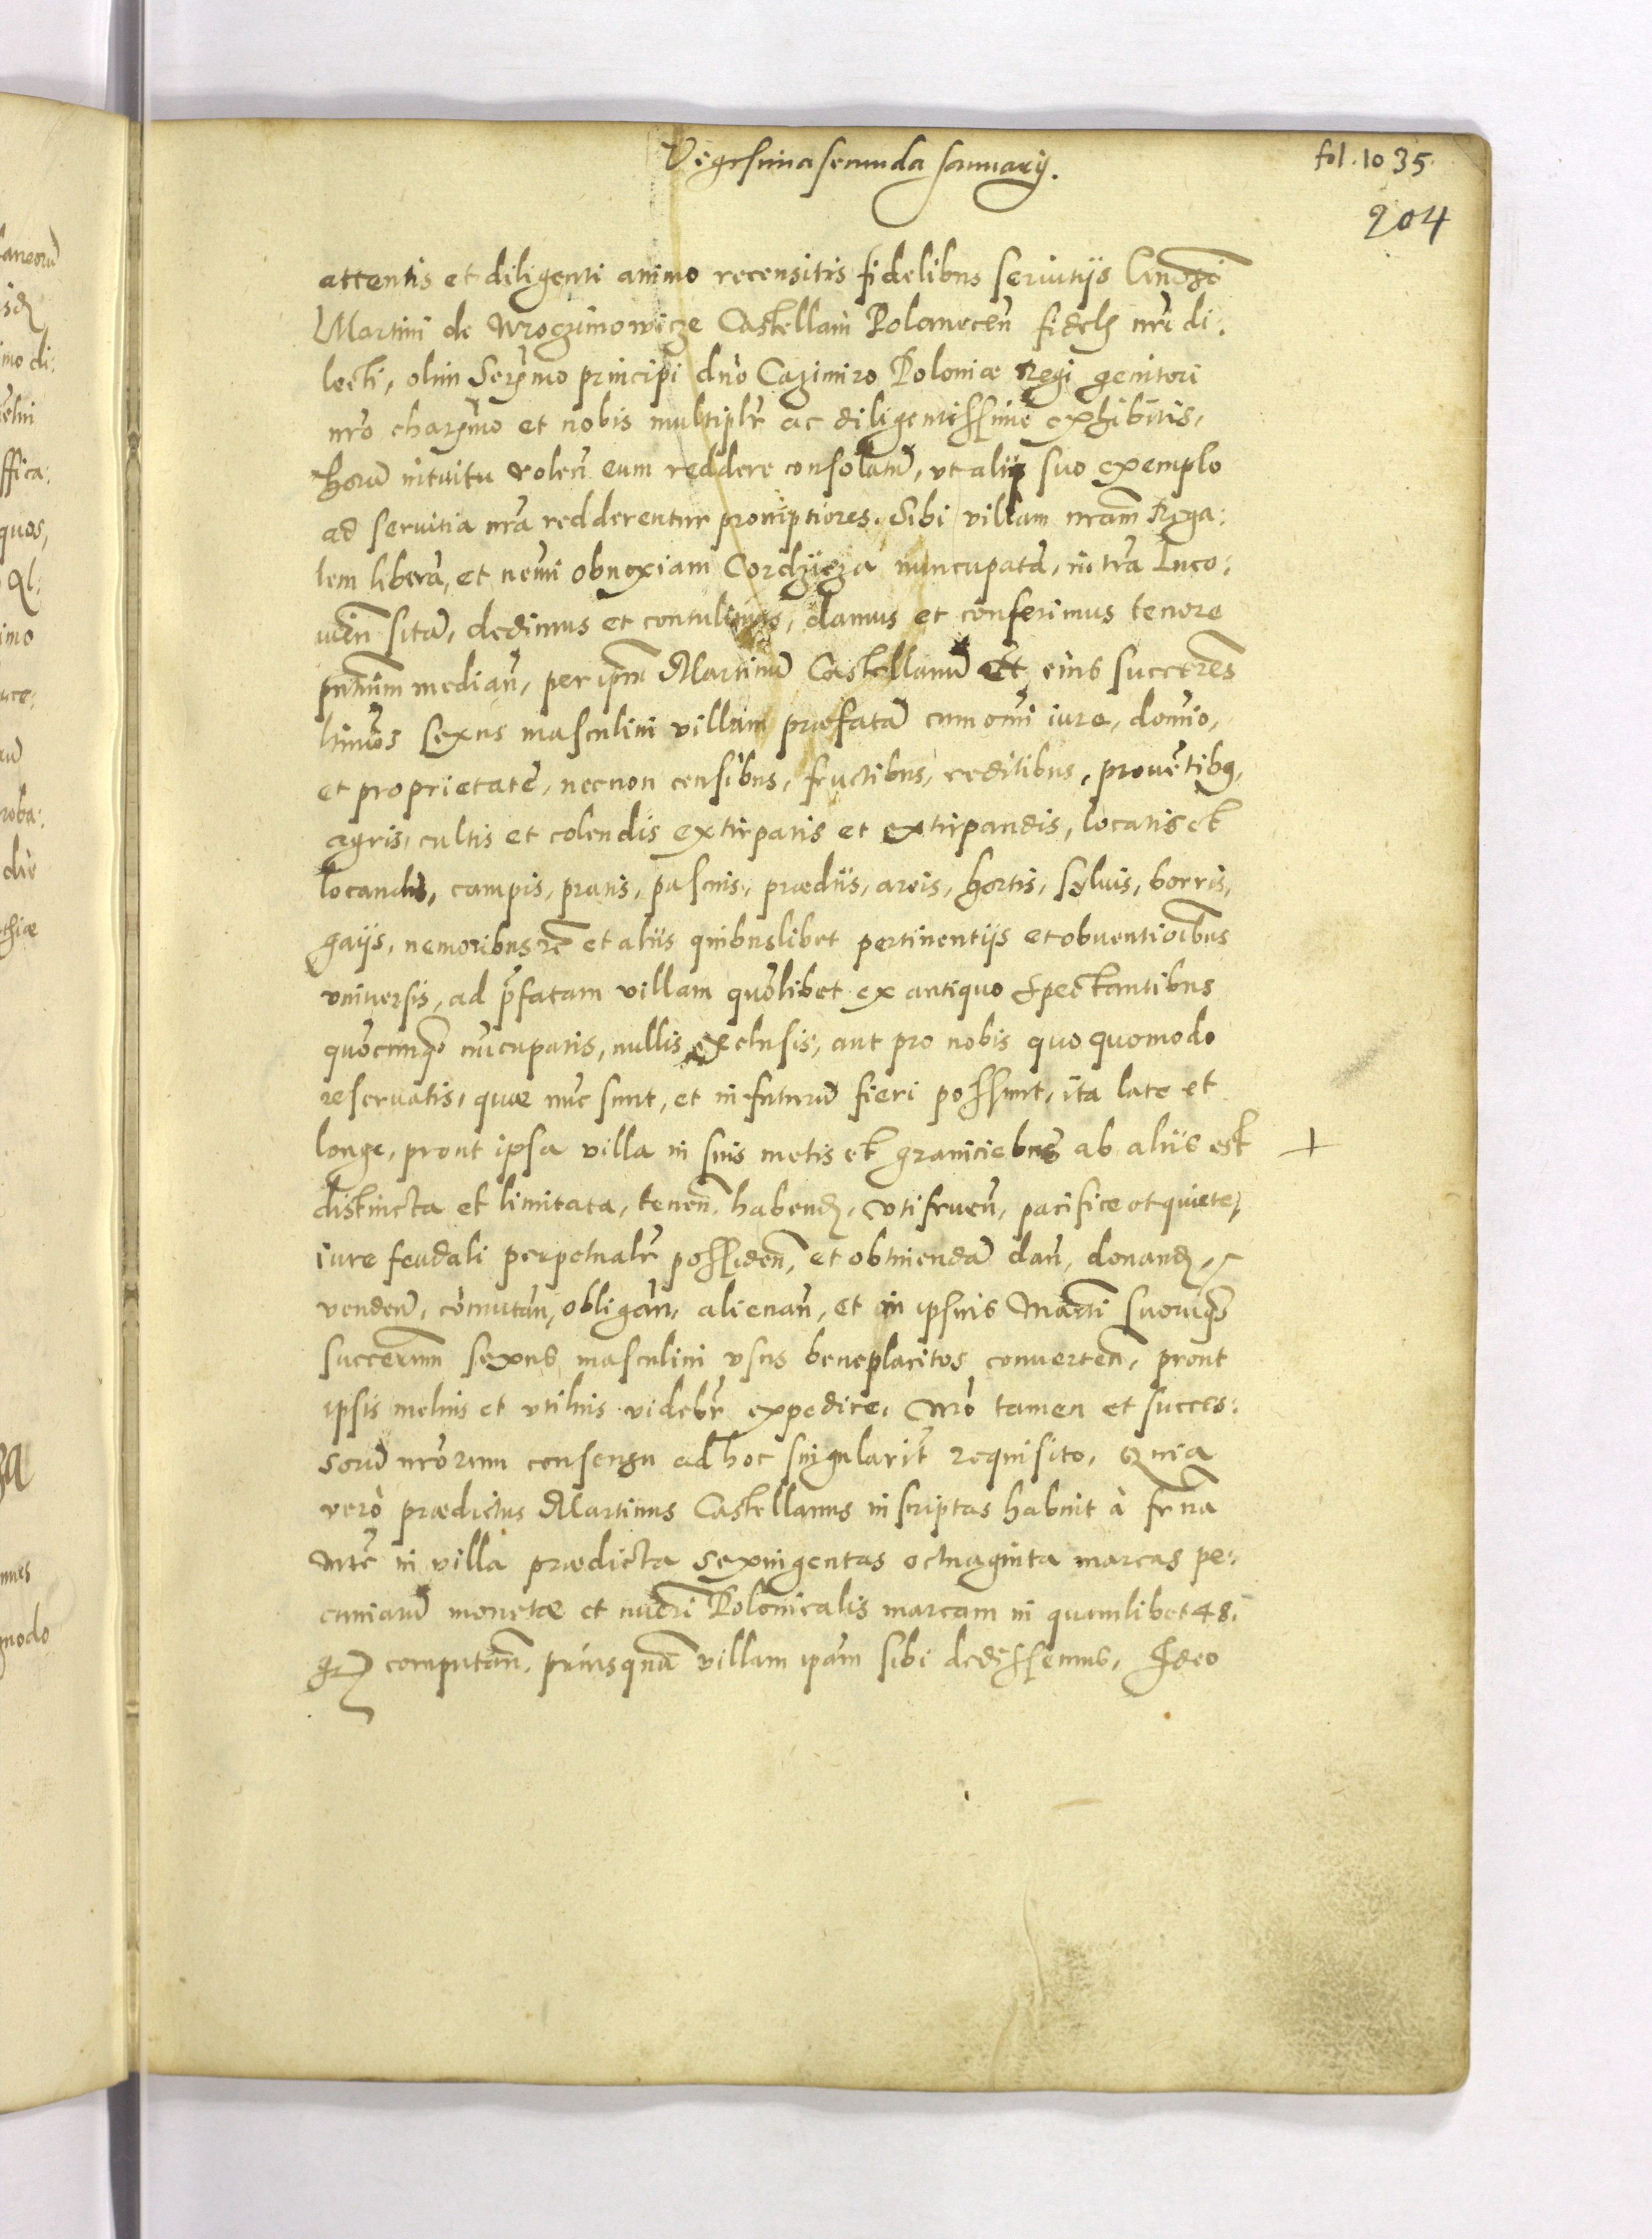 Vigesima secunda Januarij.
fol. 1035.
204
attentis et diligenti animo recensitis fidelibus seruitijs
Martini de Wrocżimowicze Castellani Polonecen̄ fidel nr̄i di:
lecti, olim Serm̄o principi dn̄o Cazimiro Poloniæ Regi genitori
nr̄o charm̄o et nobis multiplr̄ ac diligentissime exhibitis,
horū intuitu volen̄ eum reddere consolatū, vt alij suo exemplo
ad seruitia nr̄a redderentur promptiores. Sibi villam nr̄am Rega:
lem liberā, et nem̄i obnoxiam nuncupatā, in tr̄a Luco:
uien̄ sitā, dedimus et contulimus, damus et conferimus tenore
pn̄tium median̄, per ipm̄ Martinū Castellanū et eius succeres̄
ltimos sexus masculini villam præfatā cum om̄i iure, domīo,
et proprietate, necnon censibus, fructibus, reditibus, prouētibq,
agris, cultis et colendis extirpatis et extirpandis, locatis et
locandis, campis, pratis, pascuis, prædiis, areis, hortis, syluis, borris,
gaijs, nemoribus et aliis quibuslibet pertinentijs et obuentioībus
vniuersis, ad p̄fatam villam quōlibet ex antiquo spectantibus
quōcunq nūcupatis, nullis exclusis, aut pro nobis quoquomodo
reseruatis, quæ nūc sunt, et in futurū fieri possunt, ita late et
longe, prout ipsa villa in suis metis et graniciebus ab aliis est +
distincta et limitata, tenen̄. habend, vtifruen̄, pacifice et quiete,
iure feudali perpetualr̄ possiden̄, et obtinendā dan̄, donand,
venden̄, cōmutan̄, obligan̄, alienan̄, et in ipsius Marti suorūq
succerum̄ sexus masculini vsus beneplacitos conuerten̄, prout
ipsis melius et vtilius videbr̄ expedire, nr̄o tamen et succes:
sorū nr̄orum consensu ad hoc singularit̄ requisito, Quia
verò prædictus Martinus Castellanus inscriptas habuit à
nr̄e in villa prædicta sexingentas octuaginta marcas pe:
cuniarū monetæ et nueri Polonicalis marcam in quamlibet 48.
gr computan̄. priusquā villam ipam̄ sibi dedissemus, Ideo